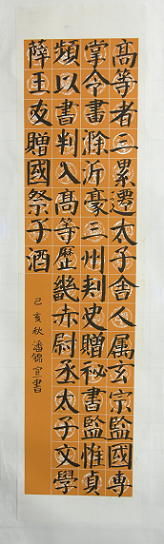 高等者三累遷太子舍人属玄宗監國專
掌令書滁沂豪三州刺史贈秘書監惟貞
頻以書判入高等歷畿赤尉丞太子文學
薛王友贈國祭子酒
己亥秋潘錦宜書